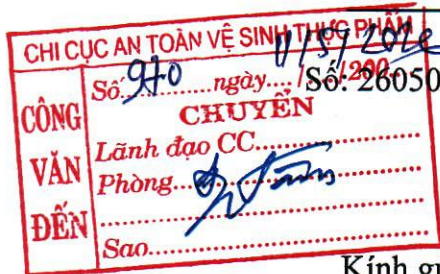 CHI CỤC AN TOÀN VỆ SINH THỰC PHẨM
CÔNG VĂN ĐẾN
Số 970 ngày..../....200 Số: 26050
11/5/202
CHUYỂN
Lãnh đạo CC
Phòng
Sao
Kính gử